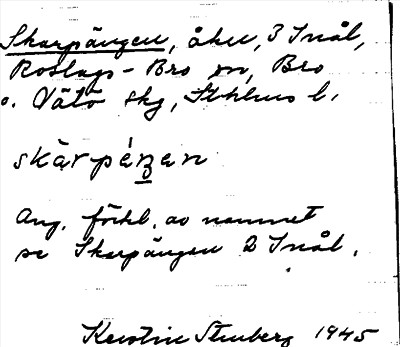 Skarpängen, åker, 3 Snål,
Roslags-Bro sn, Bro
o. Vätö skg, Sthlms l.
skàrpéŋen
Ang. förkl. av namnet
se Skarpängen 2 Snål.
Kerstin Stenberg 1945